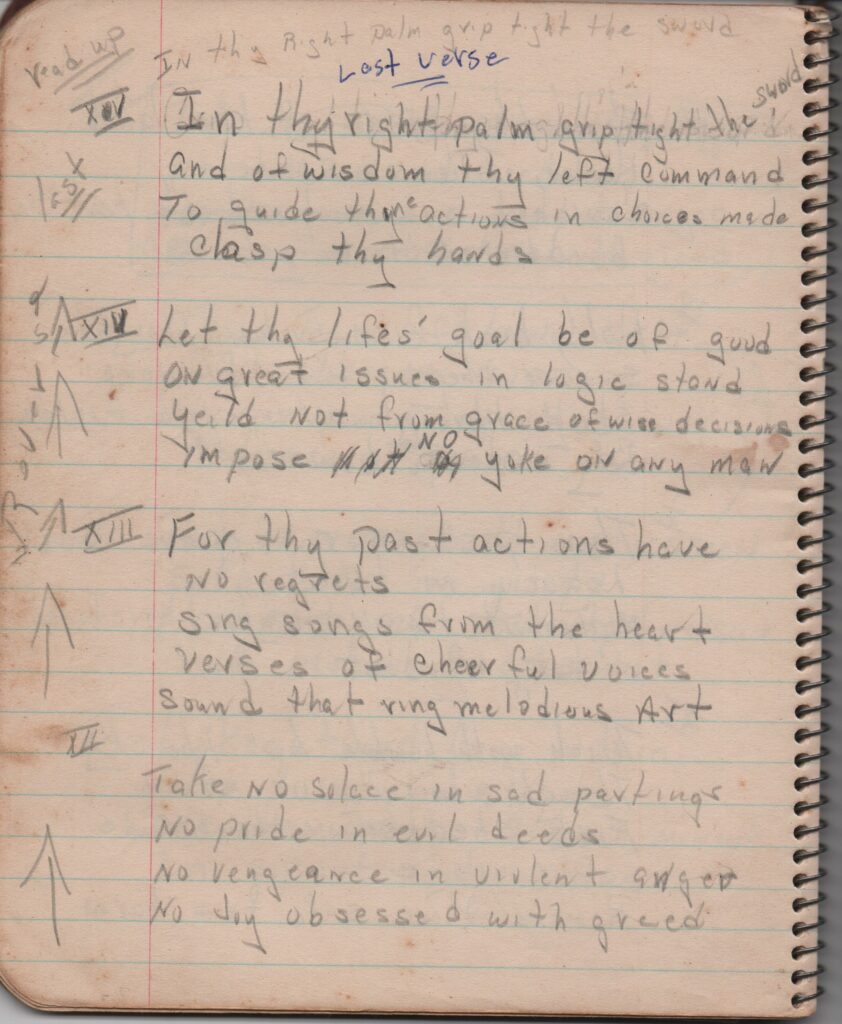 In thy Right palm grip tight the sword
read up
Last verse
XV In thy right palm grip tight the sword
and of wisdom thy left command
last X
To guide thyne actions in choices made
clasp thy hands
XIV Let thy lifes' goal be of good
ON great issues in logic stand
yeild Not from grace of wise decisions
impose NO yoke on any man
XIII For thy past actions have
No regrets
sing songs from the heart
verses of cheerful voices
sound that ring melodious Art
XII
Take No solace in sad partings
No pride in evil deeds
No vengeance in violent anger
No Joy obsessed with greed